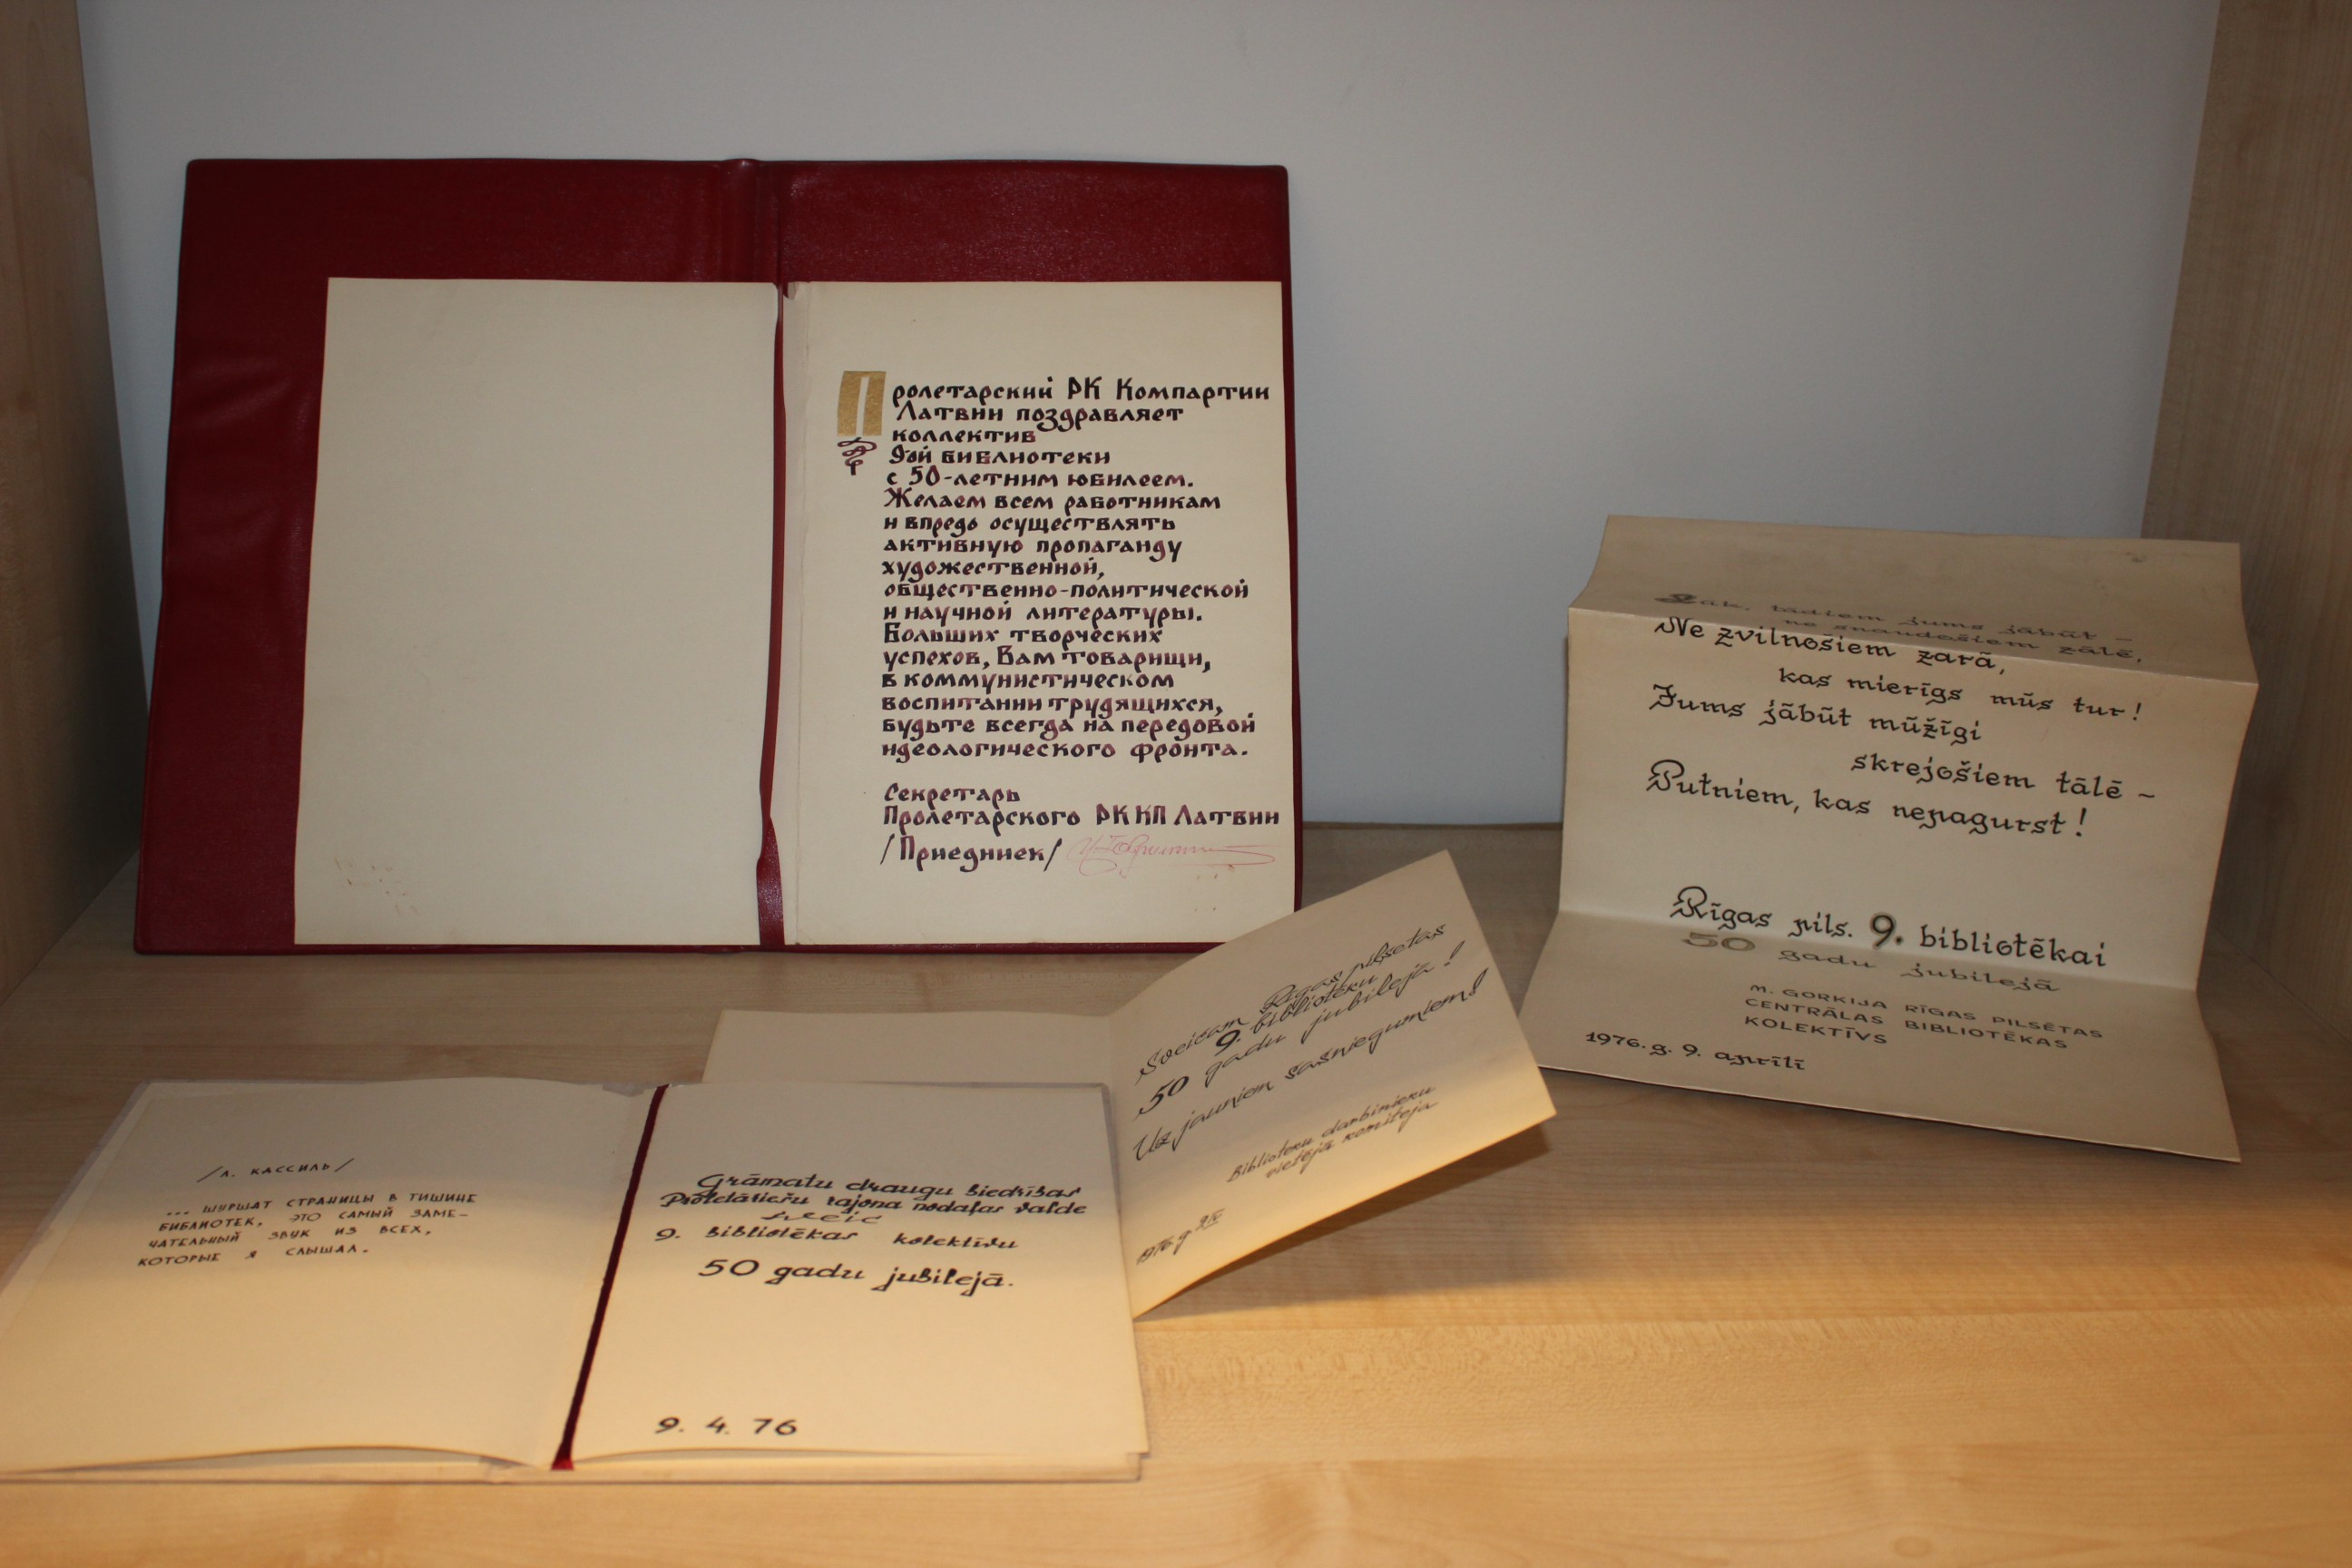 Пролетарский РК Компартии
Латвии поздравляет
коллектив
9ой библиотеки
с 50-летним юбилеем.
Желаем всем работникам
и впредь осуществлять
активную пропаганду
художественной,
общественно-политической
и научной литературы.
Больших творческих
успехов, Вам товарищи,
в коммунистическом
воспитании трудящихся,
будьте всегда на передовой
идеологического фронта.
Секретарь
Пролетарского РК КП Латвии
/Приедниек/
/Л. КАССИЛЬ/
... ШУРШАТ СТРАНИЦЫ В ТИШИНЕ
БИБЛИОТЕК, ЭТО САМЫЙ ЗАМЕ-
ЧАТЕЛЬНЫЙ ЗВУК ИЗ ВСЕХ,
КОТОРЫЕ Я СЛЫШАЛ.
Grāmatu draugu biedrības
Proletāriešu rajona nodaļas valde
sveic
9. bibliotēkas kolektīvu
50 gadu jubilejā.
9. 4. 76
Sveicam Rīgas pilsētas
9. bibliotēku
50 gadu jubilejā!
Uz jauniem sasniegumiem!
Bibliotēku darbinieku
vietējā komiteja
1976.g. 9/IV
tādiem jums jābūt –
ne snaudošiem zālē,
Ne zvilnošiem zarā,
kas mierīgs mūs tur!
Jums jābūt mūžīgi
skrejošiem tālē –
Putniem, kas nepagurst!
Rīgas pils. 9. bibliotēkai
50 gadu jubilejā
M. GORKIJA RĪGAS PILSĒTAS
CENTRĀLAS BIBLIOTĒKAS
KOLEKTĪVS
1976. g. 9. aprīlī